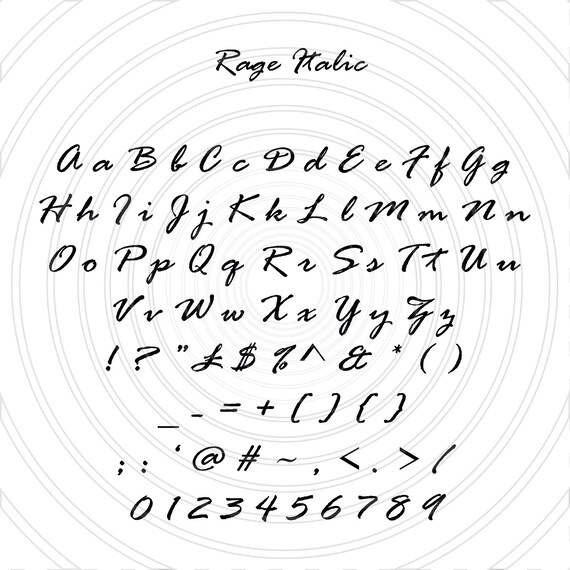 Rage Italic
A a B b C c D d E e F f G g
H h I i J j K k L l M m N n
O o P p Q q R r S s T t U u
V v W w X x Y y Z z
! ? " £ $ % ^ & * ( )
_ - = + [ ] { }
; : ‘ @ # ~ , < . > /
0 1 2 3 4 5 6 7 8 9